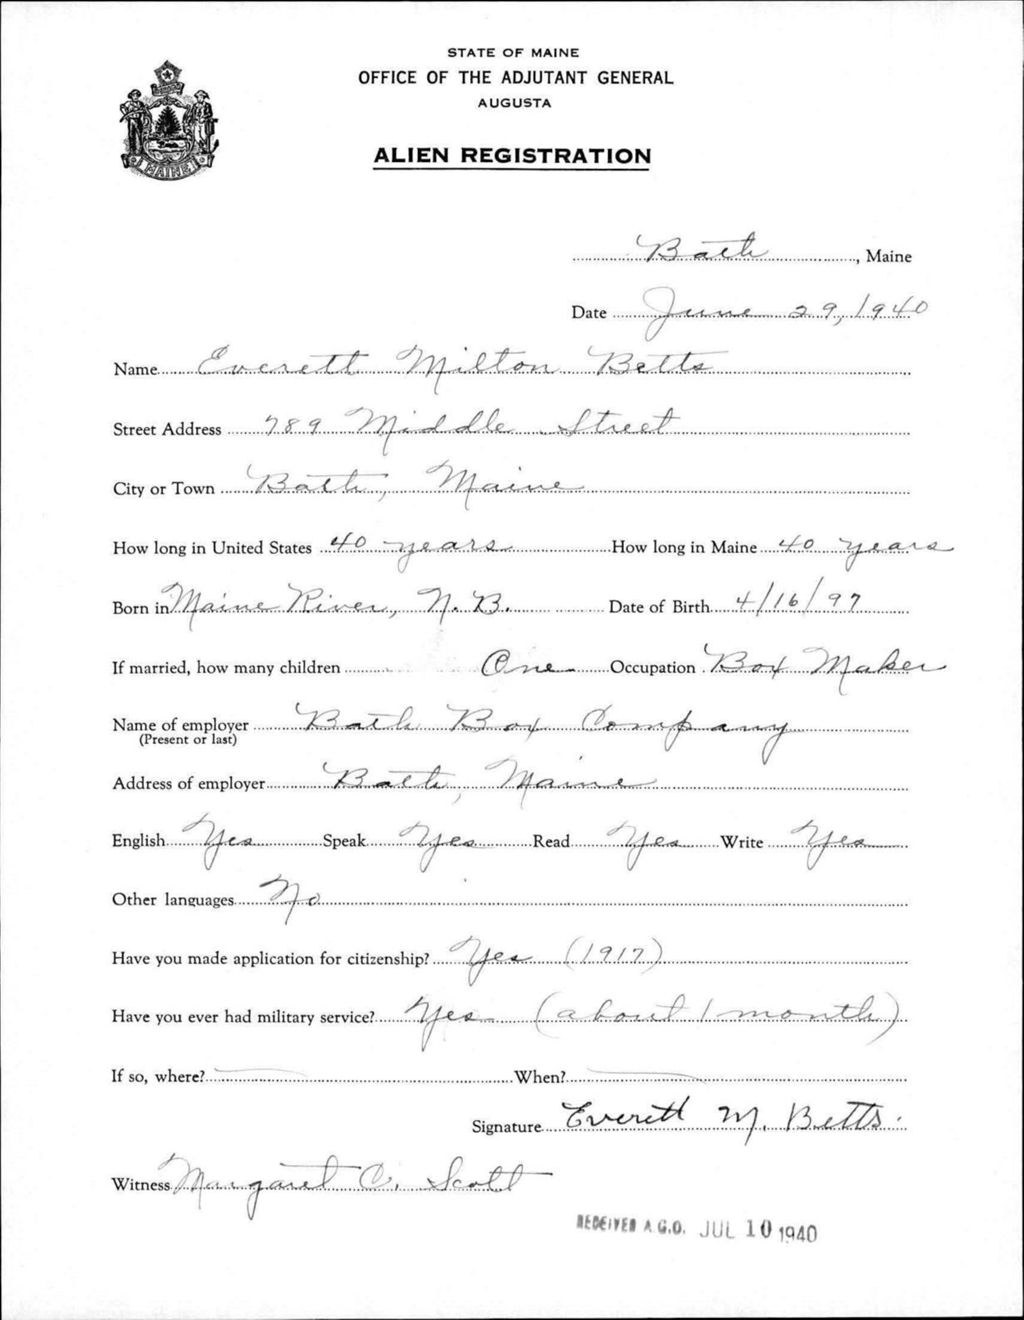 STATE OF MAINE
OFFICE OF THE ADJUTANT GENERAL
AUGUSTA
ALIEN REGISTRATION
MAINE
Bath, Maine
Date June 29, 1940
Name Everett Milton Betts
Street Address 789 Middle Street
City or Town Bath, Maine
How long in United States 40 years How long in Maine 40 years
Born in Maine River, N. B. Date of Birth 4/16/97
If married, how many children One Occupation Box Maker
Name of employer Bath Box Company
(Present or last)
Address of employer Bath, Maine
English Yes Speak Yes Read Yes Write Yes
Other languages No
Have you made application for citizenship? Yes (1917)
Have you ever had military service? Yes (about 1 month)
If so, where? When?
Signature Everett M. Betts.
Witness Margaret C. Scott
RECEIVED A.G.O. JUL 10 1940